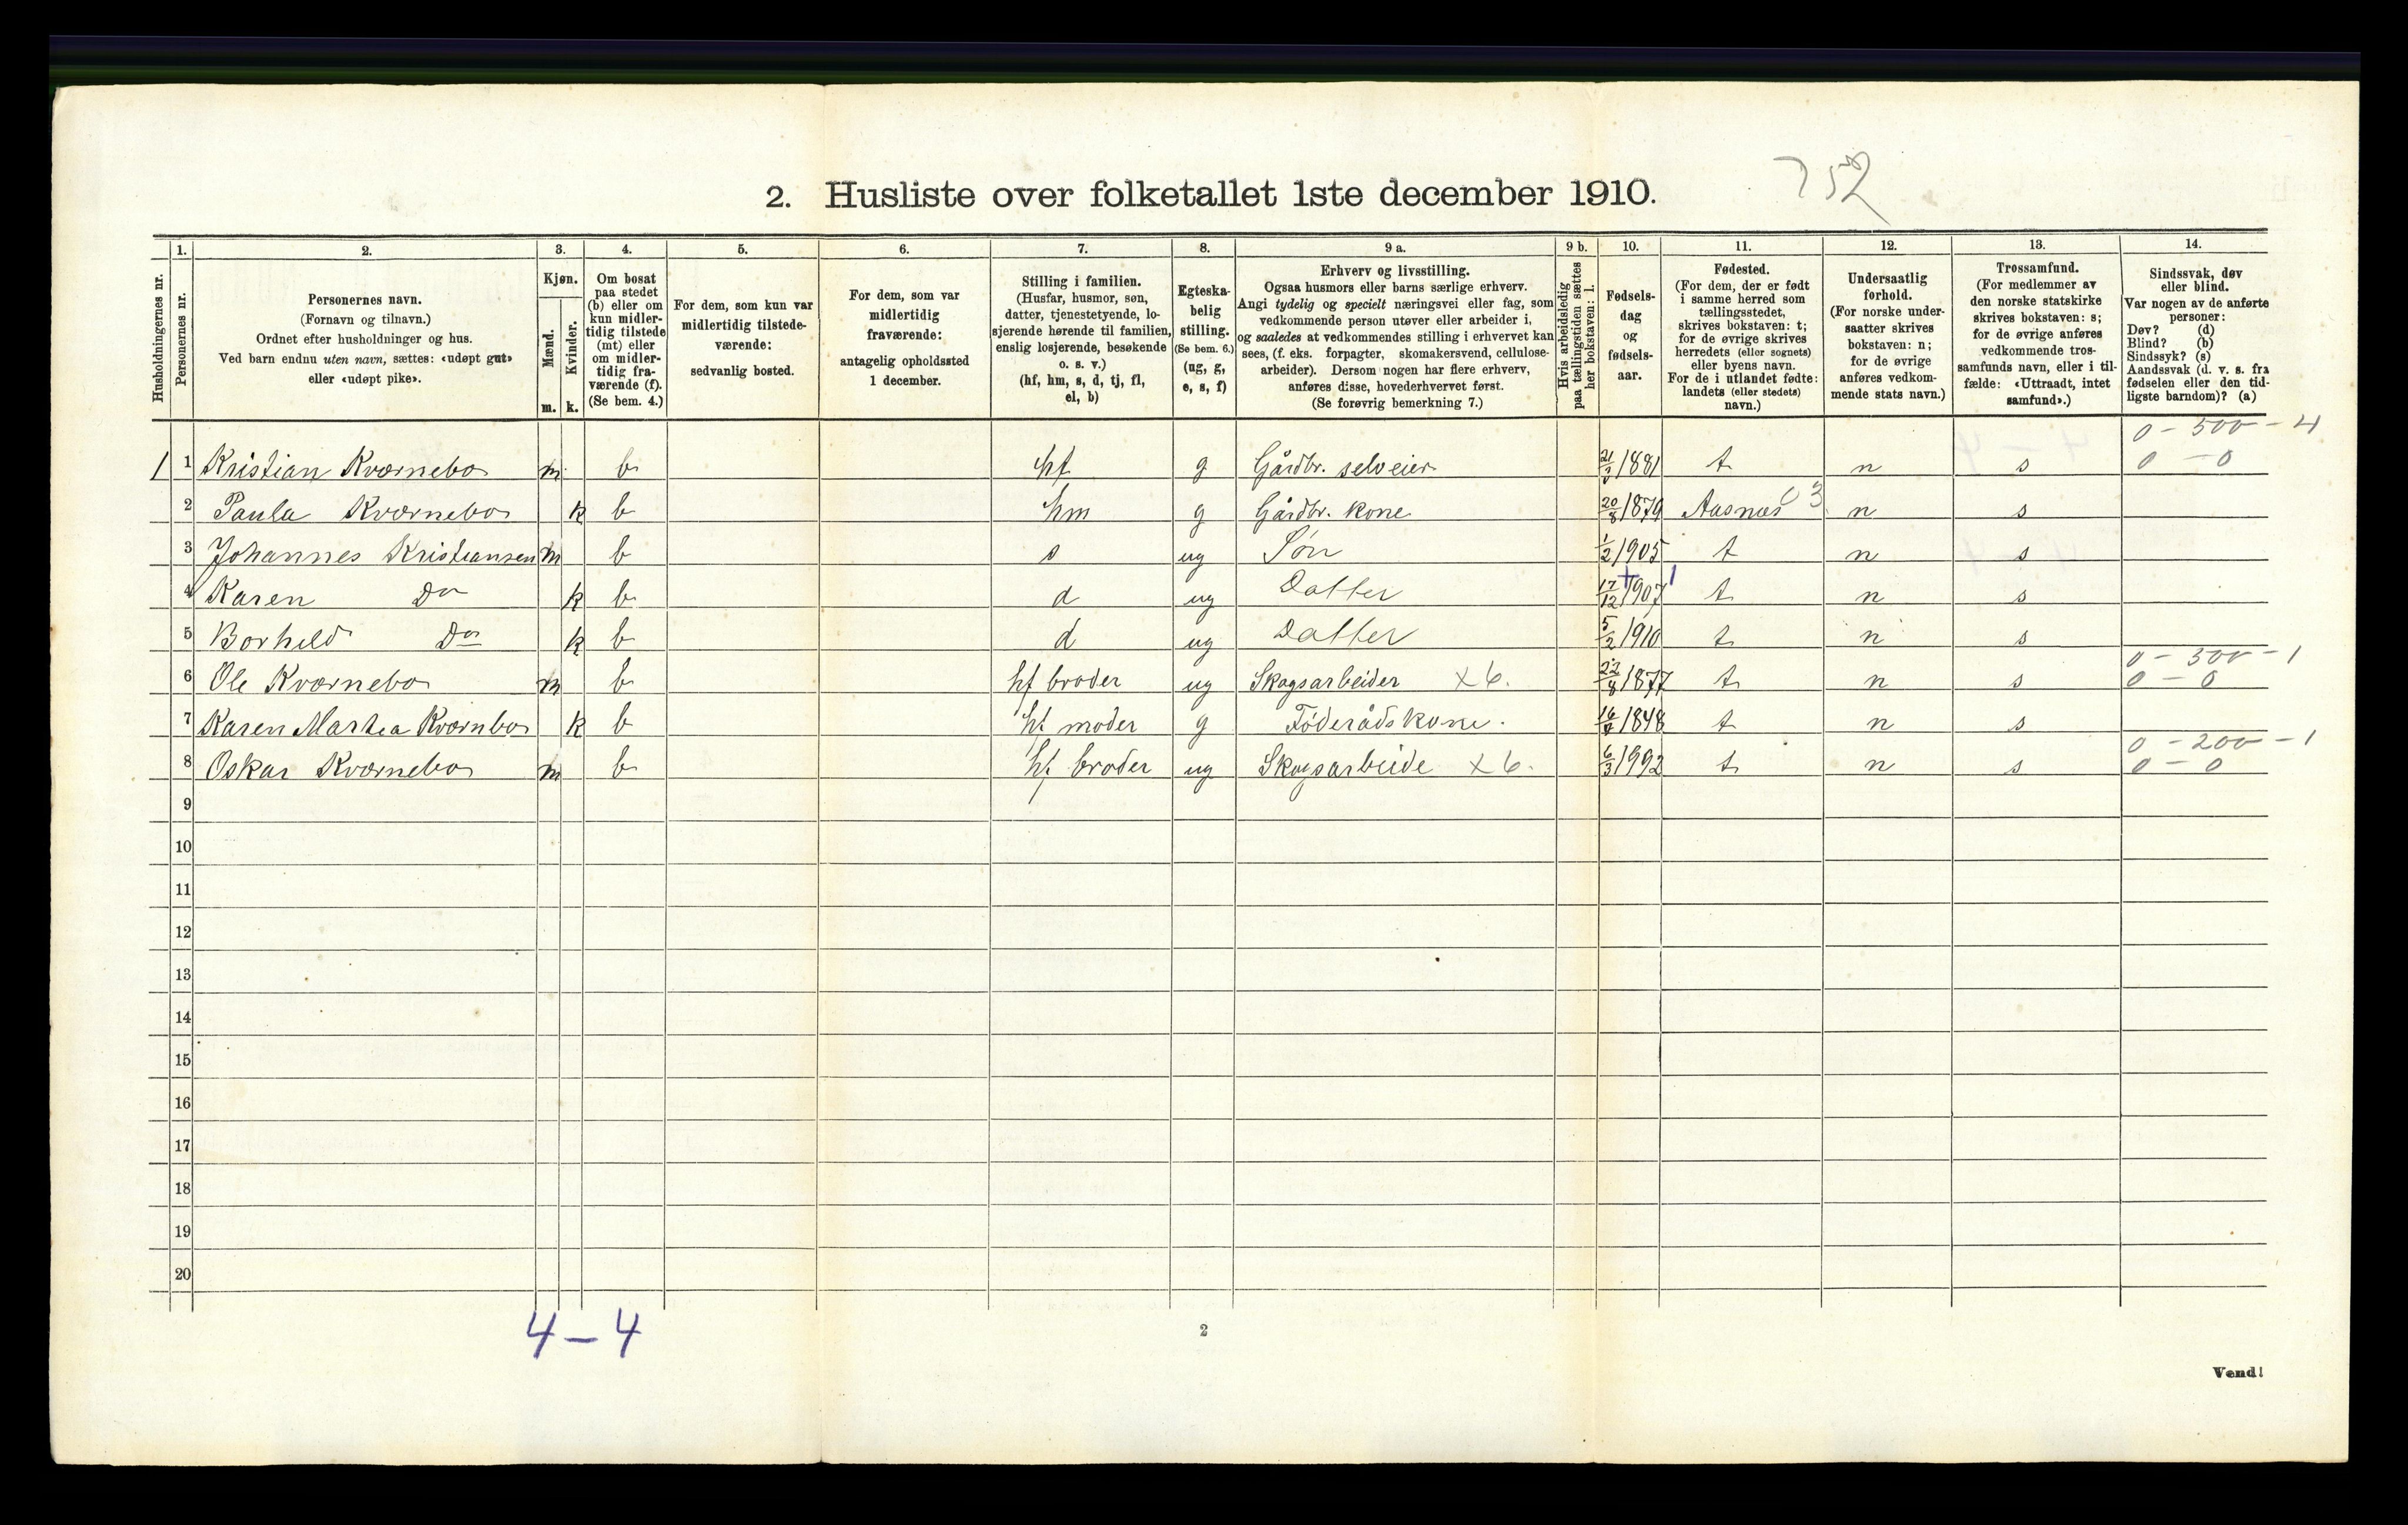 752
2. Husliste over folketallet 1ste december 1910.
Husholdningernes nr.
1. Personernes nr.
2. Personernes navn.
(Fornavn og tilnavn.)
Ordnet efter husholdninger og hus.
Ved barn endnu uten navn, sættes: «udøpt gut»
eller «udøpt pike».
3. Kjøn.
Mænd. m.
Kvinder. k.
4. Om bosat
paa stedet
(b) eller om
kun midler-
tidig tilstede
(mt) eller
om midler-
tidig fra-
værende (f).
(Se bem. 4.)
5. For dem, som kun var
midlertidig tilstede-
værende:
sedvanlig bosted.
6. For dem, som var
midlertidig
fraværende:
antagelig opholdssted
1 december.
7. Stilling i familien.
(Husfar, husmor, søn,
datter, tjenestetyende, lo-
sjerende hørende til familien,
enslig losjerende, besøkende
o. s. v.)
(hf, hm, s, d, tj, fl,
el, b)
8. Egteska-
belig
stilling.
(Se bem. 6.)
(ug, g,
e, s, f)
9 a. Erhverv og livsstilling.
Ogsaa husmors eller barns særlige erhverv.
Angi tydelig og specielt næringsvei eller fag, som
vedkommende person utøver eller arbeider i,
og saaledes at vedkommendes stilling i erhvervet kan
sees, (f. eks. forpagter, skomakersvend, cellulose-
arbeider). Dersom nogen har flere erhverv,
anføres disse, hovederhvervet først.
(Se forøvrig bemerkning 7.)
9 b. Hvis arbeidsledig
paa tællingstiden sættes
her bokstaven: l.
10. Fødsels-
dag
og
fødsels-
aar.
11. Fødested.
(For dem, der er født
i samme herred som
tællingsstedet,
skrives bokstaven: t;
for de øvrige skrives
herredets (eller sognets)
eller byens navn.
For de i utlandet fødte:
landets (eller stedets)
navn.)
12. Undersaatlig
forhold.
(For norske under-
saatter skrives
bokstaven: n;
for de øvrige
anføres vedkom-
mende stats navn.)
13. Trossamfund.
(For medlemmer av
den norske statskirke
skrives bokstaven: s;
for de øvrige anføres
vedkommende tros-
samfunds navn, eller i til-
fælde: «Uttraadt, intet
samfund».)
14. Sindssvak, døv
eller blind.
Var nogen av de anførte
personer:
Døv? (d)
Blind? (b)
Sindssyk? (s)
Aandssvak (d. v. s. fra
fødselen eller den tid-
ligste barndom)? (a)
0 - 500 - 4
1 1 Kristian Kværnebo m. b hf g Gårdbr. selveier 21/3 1881 t n s 0 - 0
2 Paula Kværnebo k b hm g Gårdbr. kone 20/8 1879 Aasnæs 03 n s
3 Johannes Kristiansen m b s ug Søn 1/2 1905 t n s
4 Karen Do k b d ug Datter 17/12 1907 t n s
5 Borhild Do k b d ug Datter 5/2 1910 t n s
0 - 300 - 1
6 Ole Kværnebo m b hf broder ug Skogsarbeider x6. 22/8 1877 t n s 0 - 0
7 Karen Martea Kværnbo k b hf moder g Føderådskone. 16/7 1848 t n s
0 - 200 - 1
8 Oskar Kværnebo m b hf broder ug Skogsarbeide x6. 6/3 1992 t n s 0 - 0
9
10
11
12
13
14
15
16
17
18
19
20
4 - 4
2
Vend!